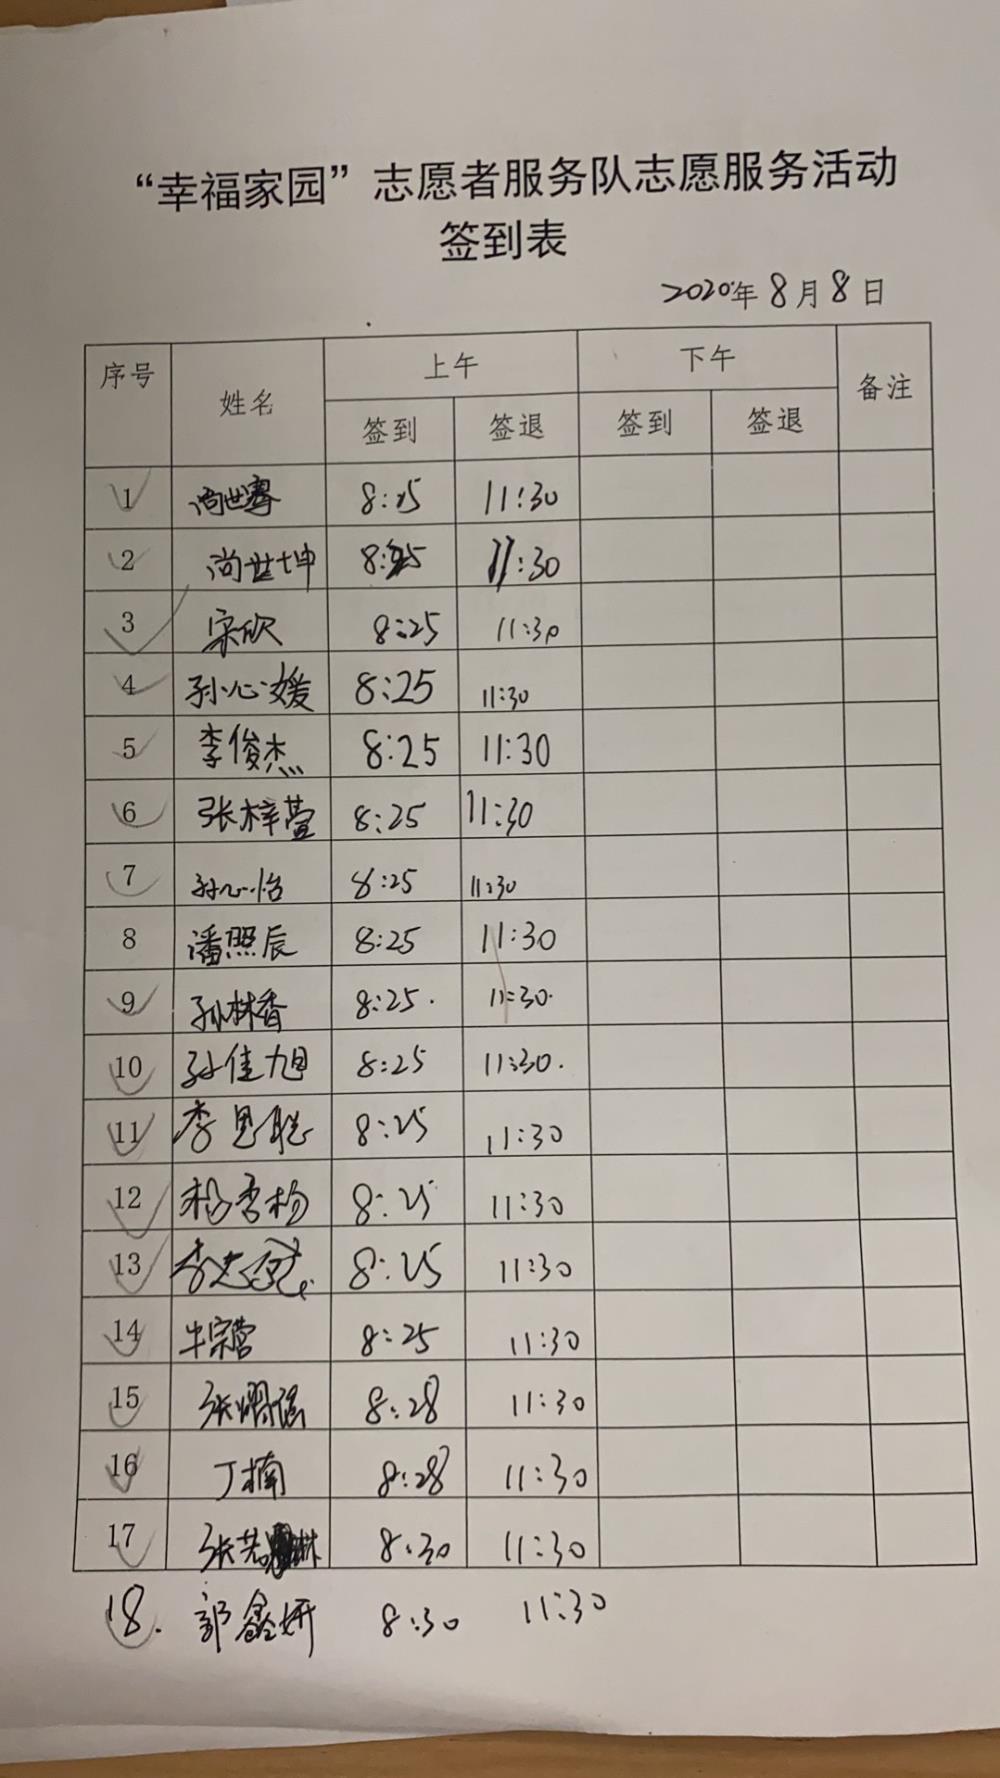 “幸福家园”志愿者服务队志愿服务活动
签到表
2020年8月8日
序号 姓名 上午 下午 备注
签到 签退 签到 签退
1 尚世骞 8:25 11:30
2 尚世坤 8:25 11:30
3 宋欣 8:25 11:30
4 孙心媛 8:25 11:30
5 李俊杰 8:25 11:30
6 张梓萱 8:25 11:30
7 孙心怡 8:25 11:30
8 潘照辰 8:25 11:30
9 孙林香 8:25. 11:30.
10 孙佳旭 8:25 11:30.
11 李思聪 8:25 11:30
12 杨 8:25 11:30
13 李 8:25 11:30
14 牛宗营 8:25 11:30
15 张 8:28 11:30
16 丁楠 8:28 11:30
17 张 琳 8:30 11:30
18. 郭鑫妍 8:30 11:30